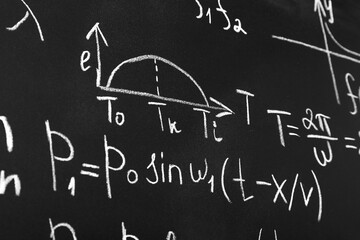 λ f₁ f₂ y
e
T₀ Tₖ Tᵢ T T = 2π/ω
P₁ = P₀ sin ω₁ (t - x/v)